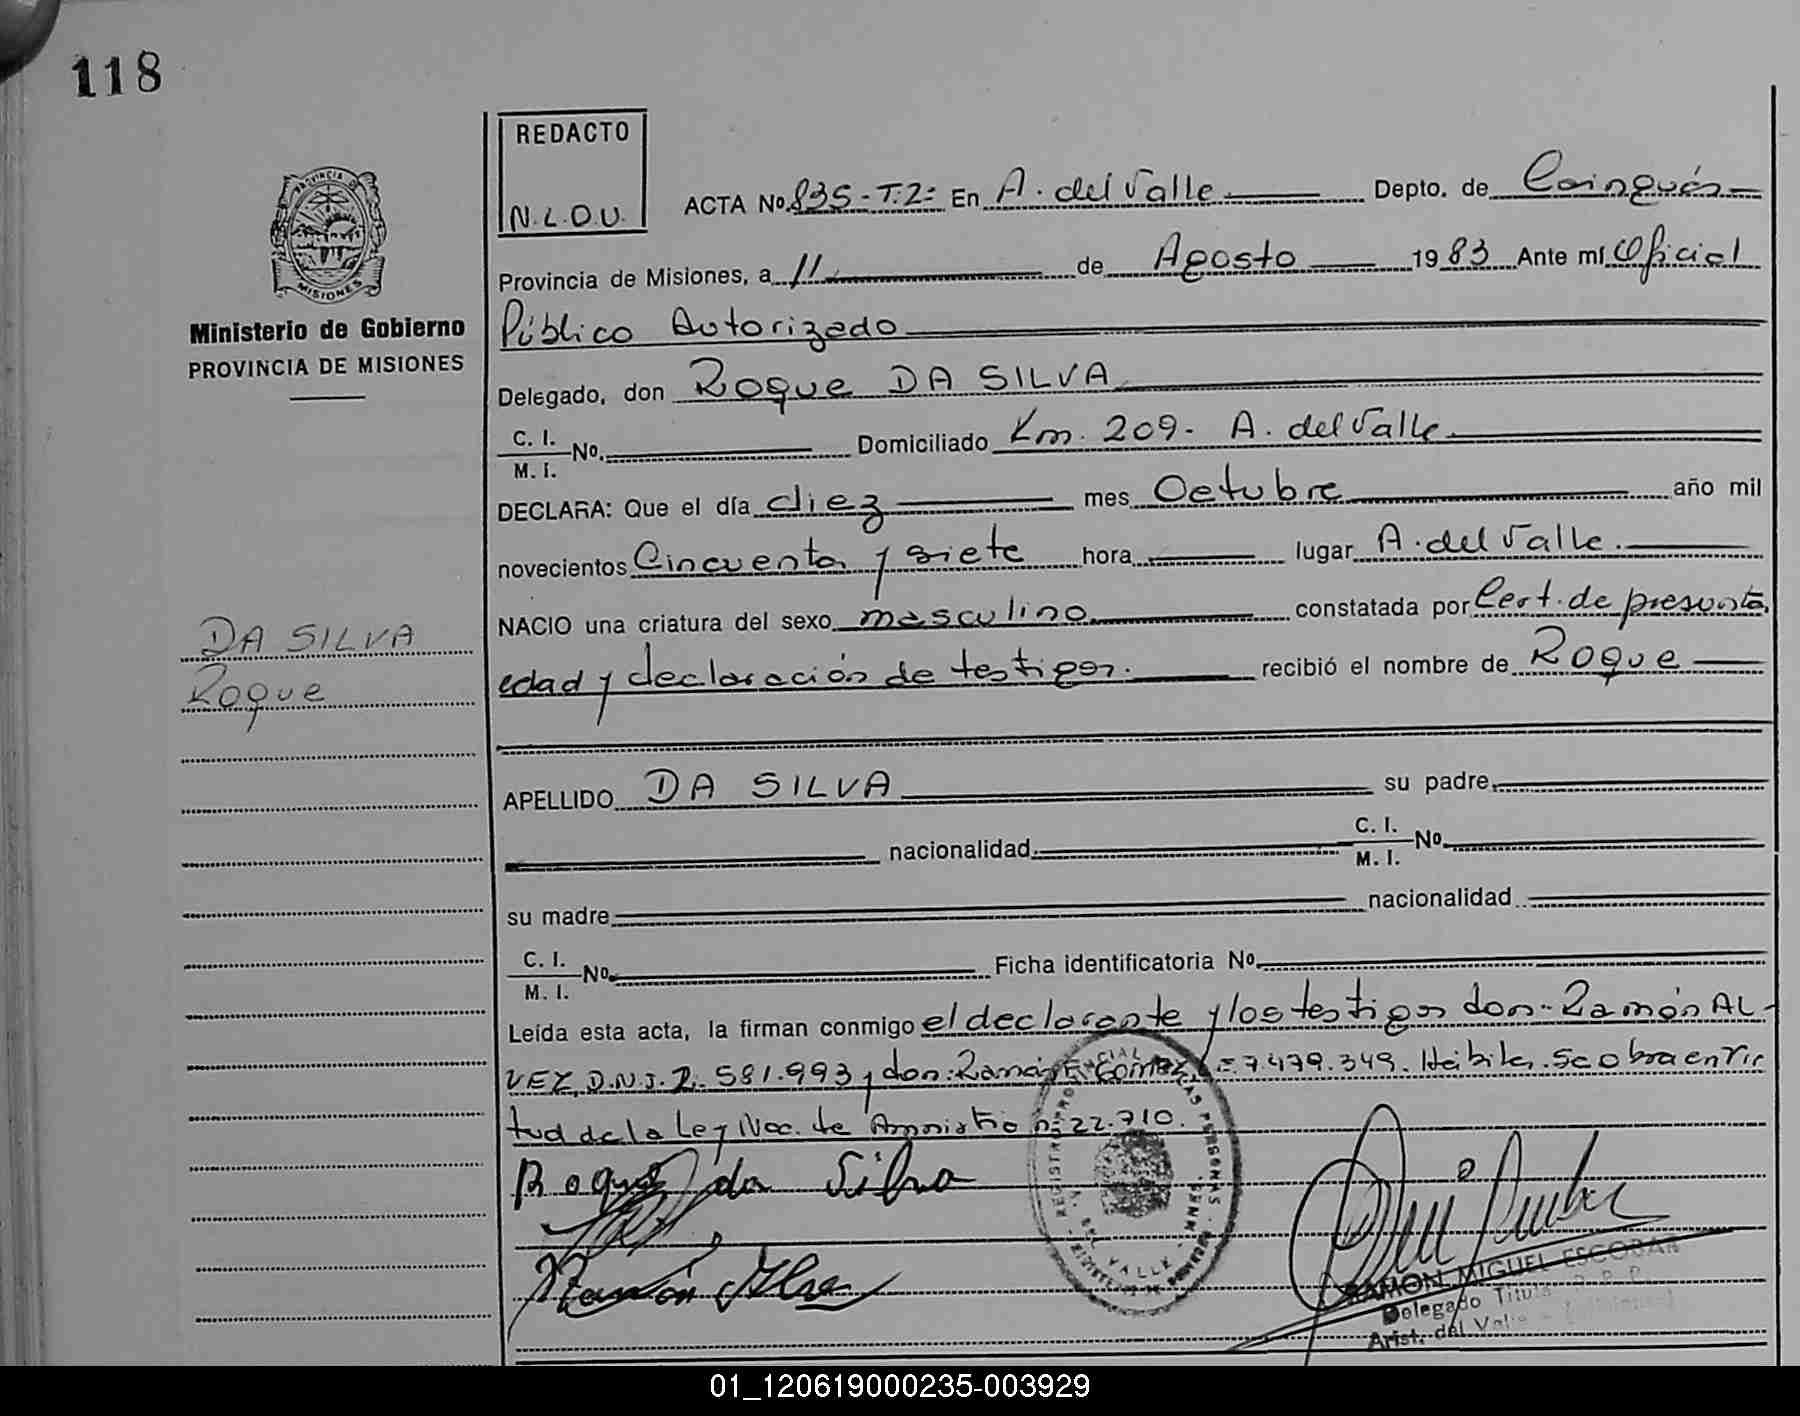 118
REDACTO
N.L.O.U.
PROVINCIA DE
MISIONES
Ministerio de Gobierno
PROVINCIA DE MISIONES
ACTA No. 835-T.2= En A. del Valle Depto. de Cainguás
Provincia de Misiones, a 11 de Agosto 1983 Ante mí Oficial
Público Autorizado
Delegado, don Roque DA SILVA
C. I. M. I. No. Domiciliado Km. 209- A. del Valle
DECLARA: Que el día diez mes Octubre año mil
novecientos Cincuenta y siete hora lugar A. del Valle.
NACIO una criatura del sexo masculino constatada por Cert. de presunta
DA SILVA
edad y declaración de testigos. recibió el nombre de Roque
Roque
APELLIDO DA SILVA su padre
nacionalidad C. I. M. I. No.
su madre nacionalidad
C. I. M. I. No. Ficha identificatoria No.
Leída esta acta, la firman conmigo el declarante y los testigos don- Ramón AL-
VEZ, D.N.I. 2. 581.993 y don: Ramón Gómez = 7.479.349. Hábiles. Se obra en vir
tud de la Ley Nac. de Amnistía nº 22.710.
Roque da Silva
Ramón Alve
RAMON MIGUEL ESCOBAR
Delegado Titular R. P. P.
Arist. del Valle
01_120619000235-003929